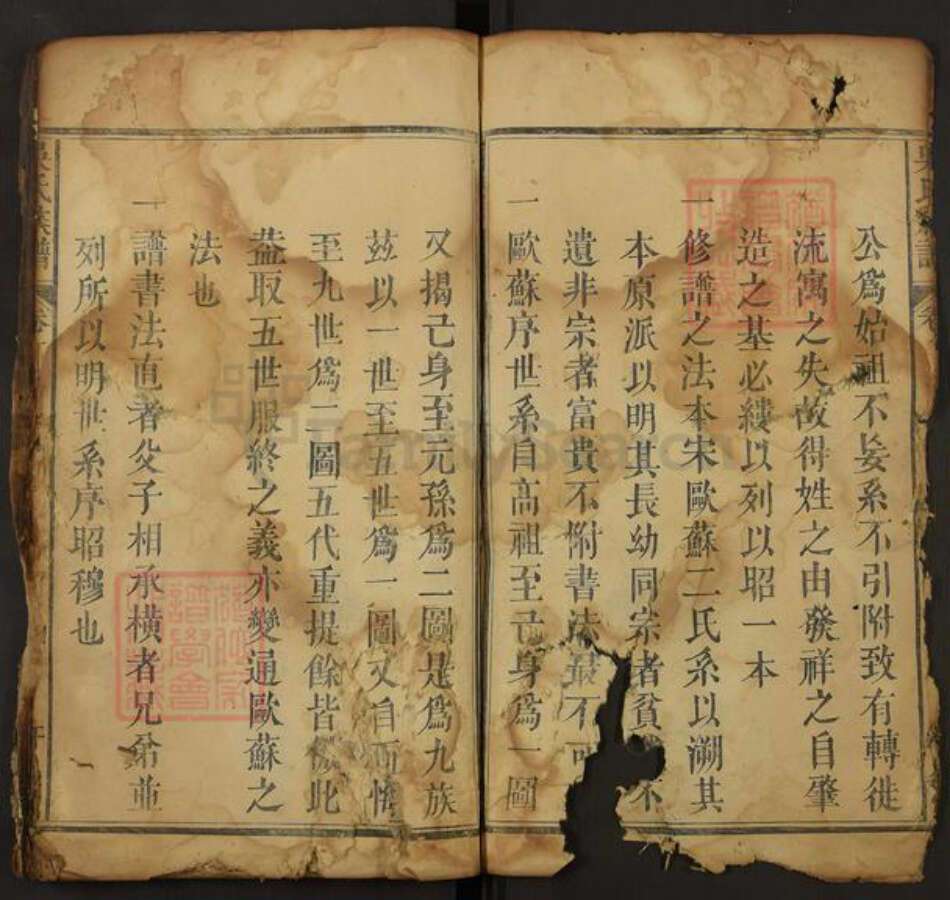 公爲始祖不妄系不引附致有轉徙
流寓之失故得姓之由發祥之自肇
造之基必縷以列以昭一本
一修譜之法本宋歐蘇二氏系以溯其
本原派以明其長幼同宗者貧 不
遺非宗者富貴不附書法最不可
一歐蘇序世系自高祖至己身爲一圖
又揭己身至元孫爲二圖是爲九族
茲以一世至五世爲一圖又自而
至九世爲二圖五代重提餘皆倣此
葢取五世服終之義亦變通歐蘇之
法也
一譜書法直者父子相承橫者兄弟並
列所以明世系序昭穆也
吳氏族譜
卷
FamilySearch